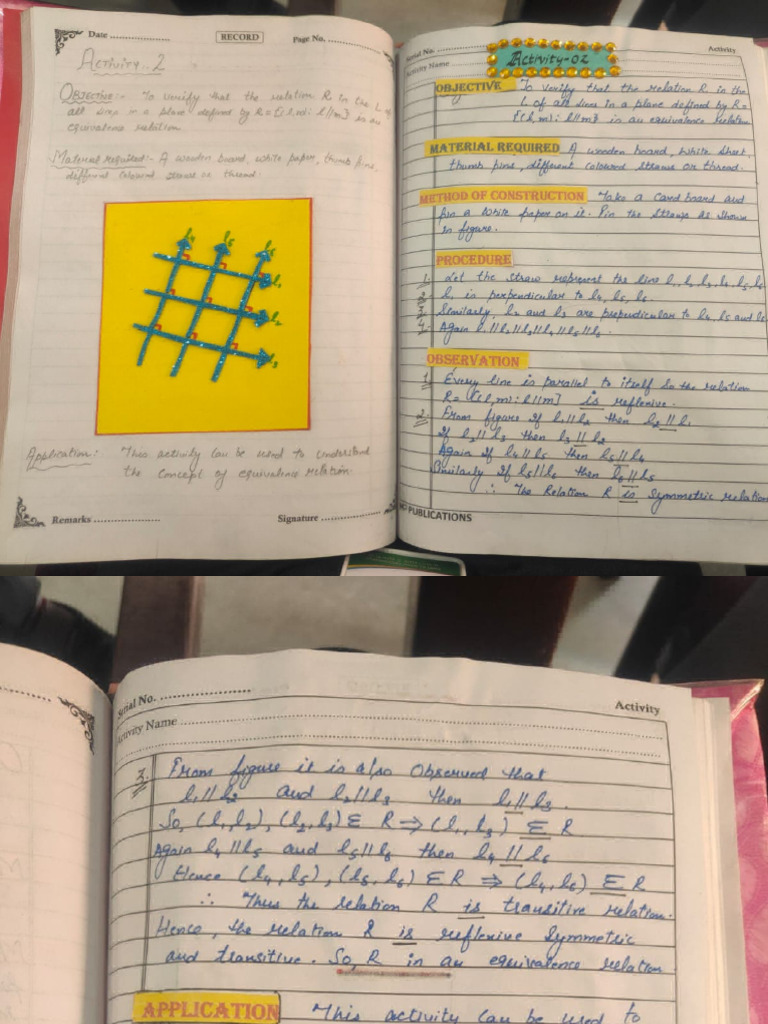 Date
RECORD
Page No.
Activity - 2
OBJECTIVE:- To verify that the relation R in the L of
all lines in a plane defined by R = {(l, m): l//m} is an
equivalence relation.
Material required:- A wooden board, white paper, thumb pins,
different coloured straws or thread.
l4 l5 l6
l1
l2
l3
Application: This activity can be used to understand
the concept of equivalence relation.
Remarks
Signature
Serial No.
Activity
Activity Name
Activity-02
OBJECTIVE To verify that the relation R in the
L of all lines in a plane defined by R=
{(l,m): l//m} is an equivalence relation
MATERIAL REQUIRED A wooden board, white sheet,
thumb pins, different coloured straws or thread.
METHOD OF CONSTRUCTION Take a Card board and
pin a white paper on it. Pin the straws as shown
in figure.
PROCEDURE
1. Let the straw represent the line l1, l2, l3, l4, l5, l6
2. l1 is perpendicular to l4, l5, l6.
3. Similarly, l2 and l3 are perpendicular to l4, l5 and l6
4. Again
OBSERVATION
1. Every line is parallel to itself So the relation
R= {(l,m): l//m} is reflexive.
2. From figure if l1//l2 then l2//l1
If l2//l3 then l3//l2
Again if l4//l5 then l5//l4
Similarly if l5//l6 then l6//l5
∴ The Relation R is Symmetric relation
PUBLICATIONS
Serial No.
Activity
Activity Name
3. From figure it is also Observed that
l1//l2 and l2//l3 then l1//l3.
So, (l1,l2), (l2,l3) ∈ R ⇒ (l1, l3) ∈ R
Again l4//l5 and l5//l6 then l4 // l6
Hence (l4, l5), (l5, l6) ∈ R ⇒ (l4, l6) ∈ R
∴ Thus the relation R is transitive relation.
Hence, the relation R is reflexive Symmetric
and transitive. So, R in an equivalence relation
APPLICATION This activity can be used to